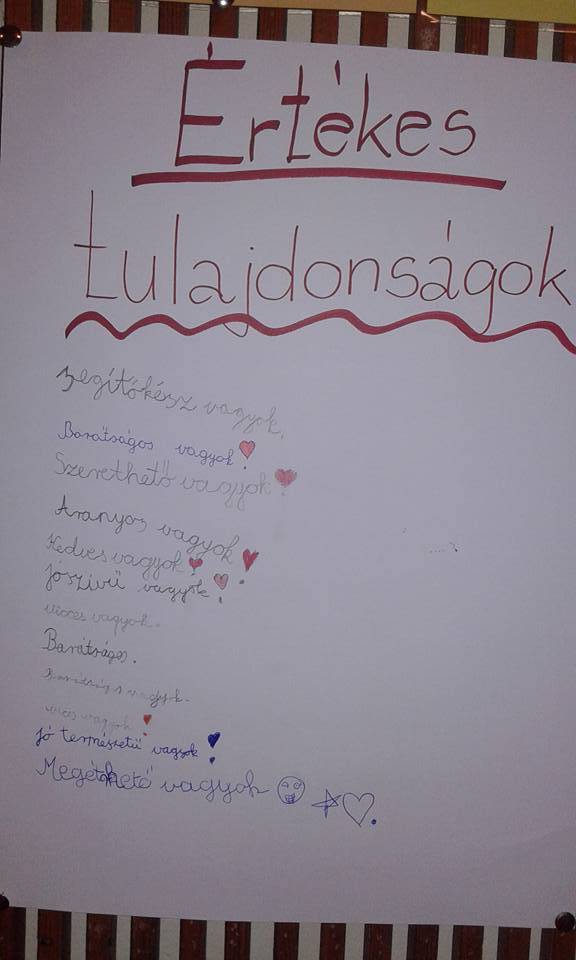 Értékes
tulajdonságok
segítőkész vagyok.
Barátságos vagyok!
Szerethető vagyok!
Aranyos vagyok!
Kedves vagyok!
jószivü vagyok!
vicces vagyok.
Barátságos.
Barátságos vagyok.
vicces vagyok!
jó természetű vagyok!
Megérthető vagyok